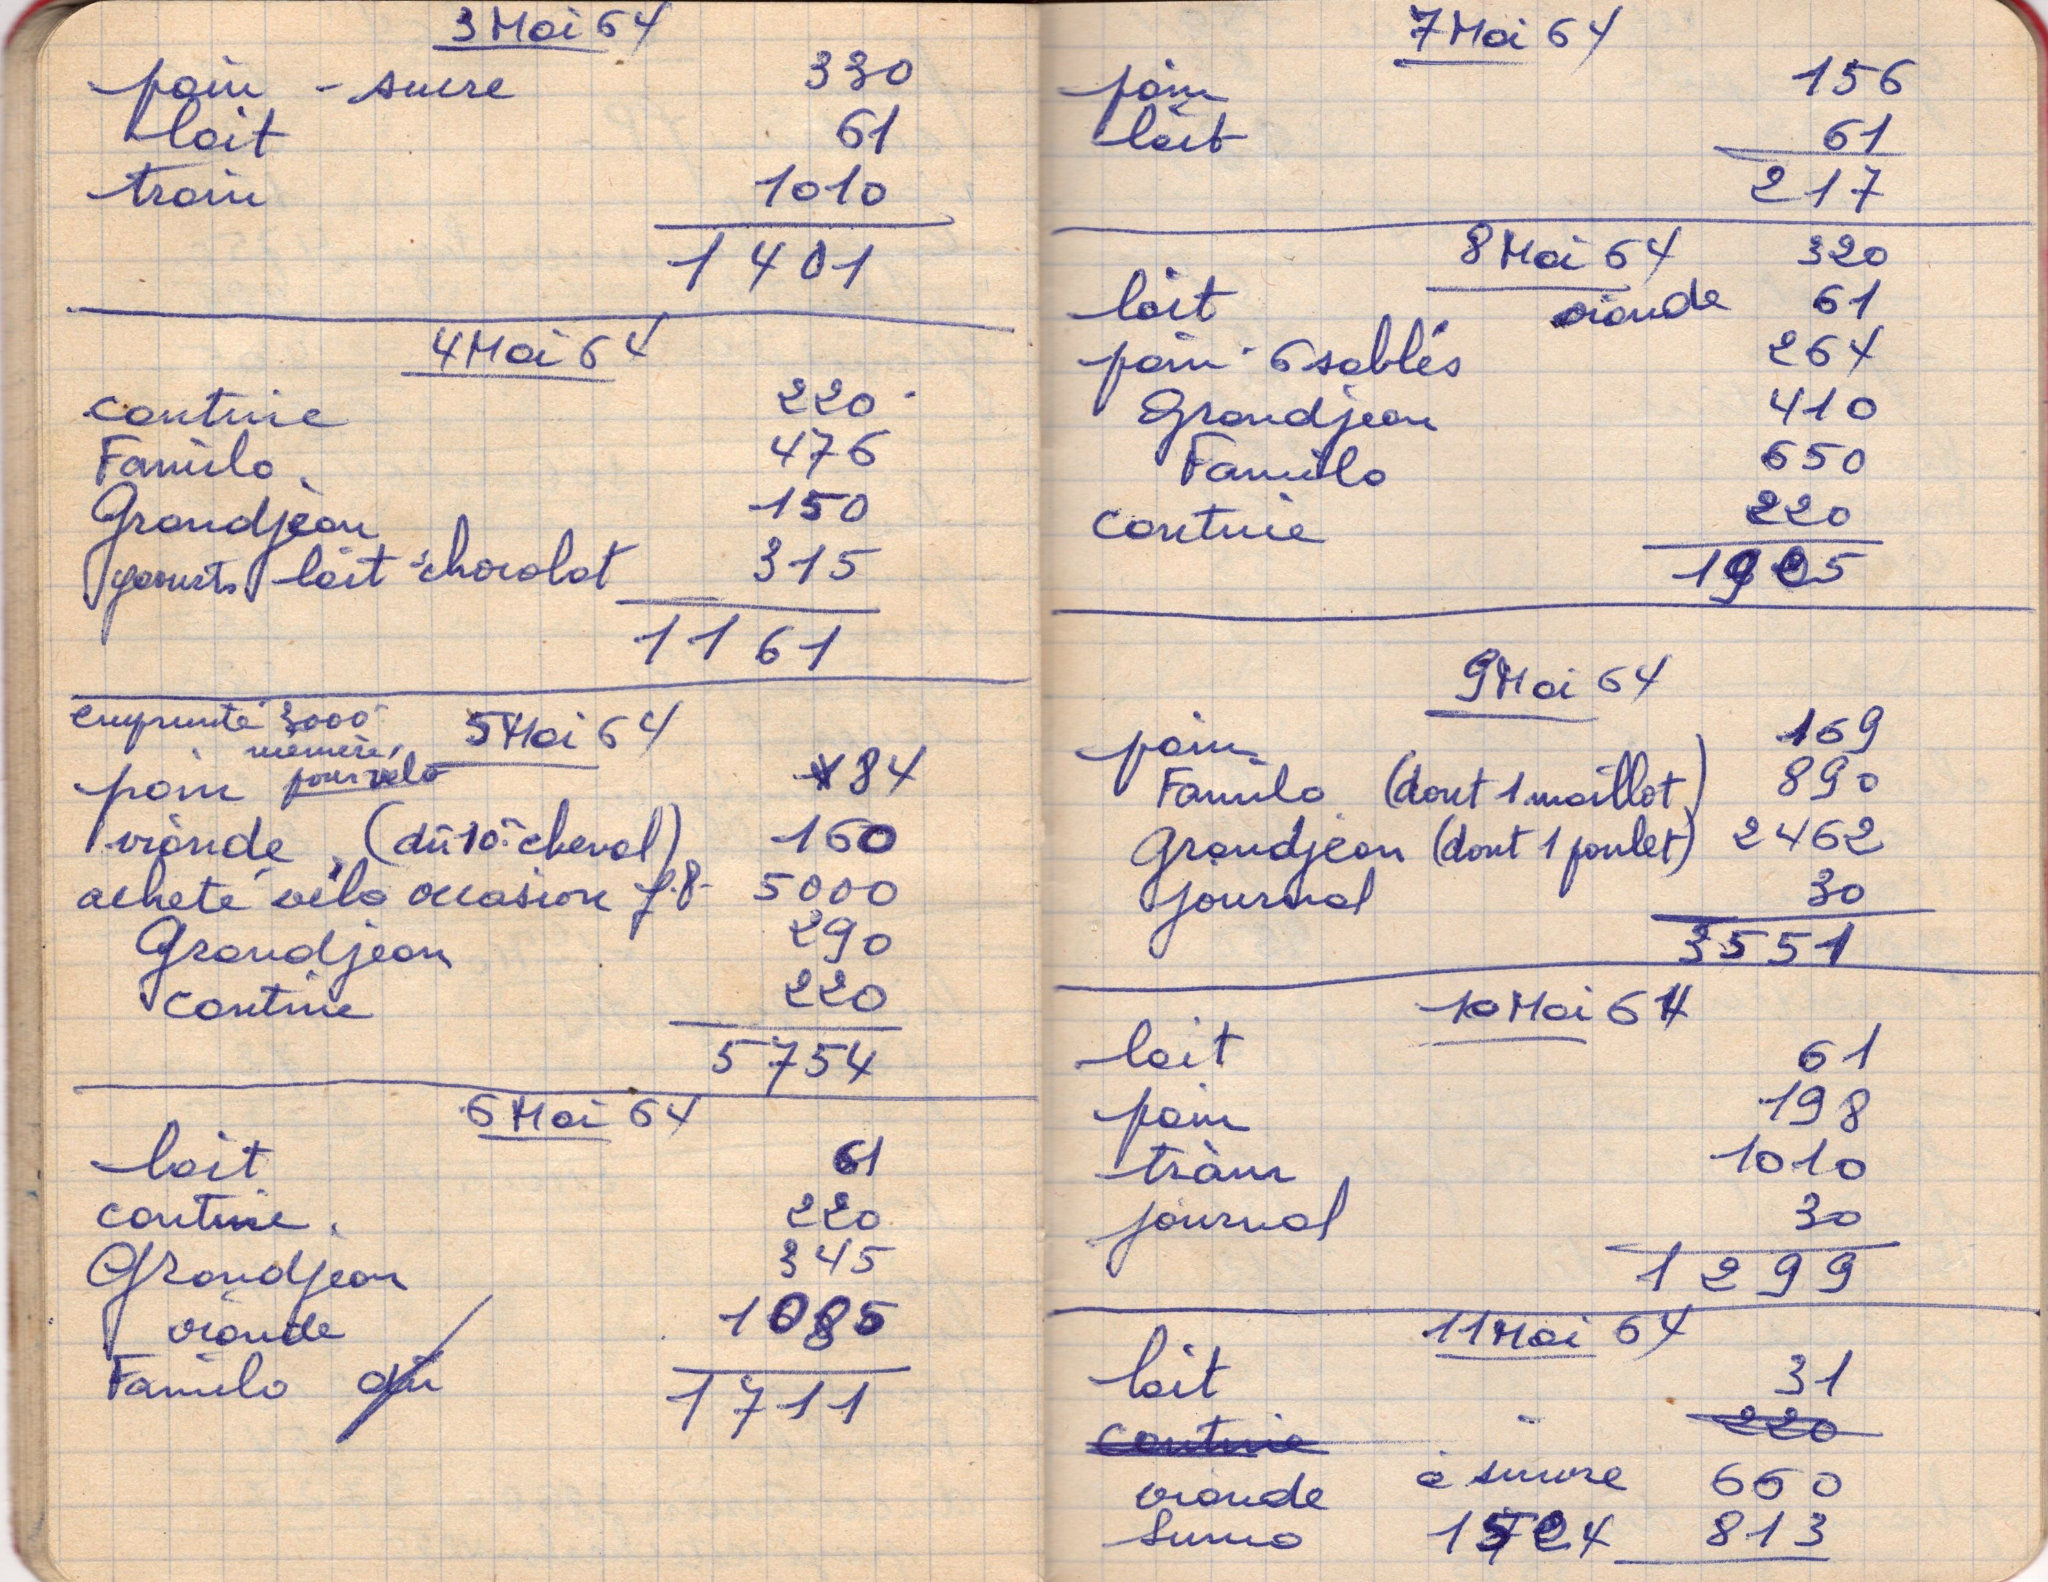 3 Mai 64
pain - sucre 330
lait 61
train 1010
1401
4 Mai 64
cantine 220
Familo 476
Grandjean 150
yaourts lait chocolat 315
1161
emprunté 3000 5 Mai 64
mémère
pour vélo
pain 84
viande (dû 10 cheval) 160
acheté vélo occasion 5000
Grandjean 290
cantine 220
5754
6 Mai 64
lait 61
cantine 220
Grandjean 345
viande 1085
Familo dû
1711
7 Mai 64
pain 156
lait 61
217
8 Mai 64 320
lait viande 61
pain 6 sablés 264
Grandjean 410
Familo 650
cantine 220
1925
9 Mai 64
pain 169
Familo (dont 1 maillot) 890
Grandjean (dont 1 poulet) 2462
journal 30
3551
10 Mai 64
lait 61
pain 198
train 1010
journal 30
1299
11 Mai 64
lait 31
cantine 220
viande à suivre 660
Suma 1524 813